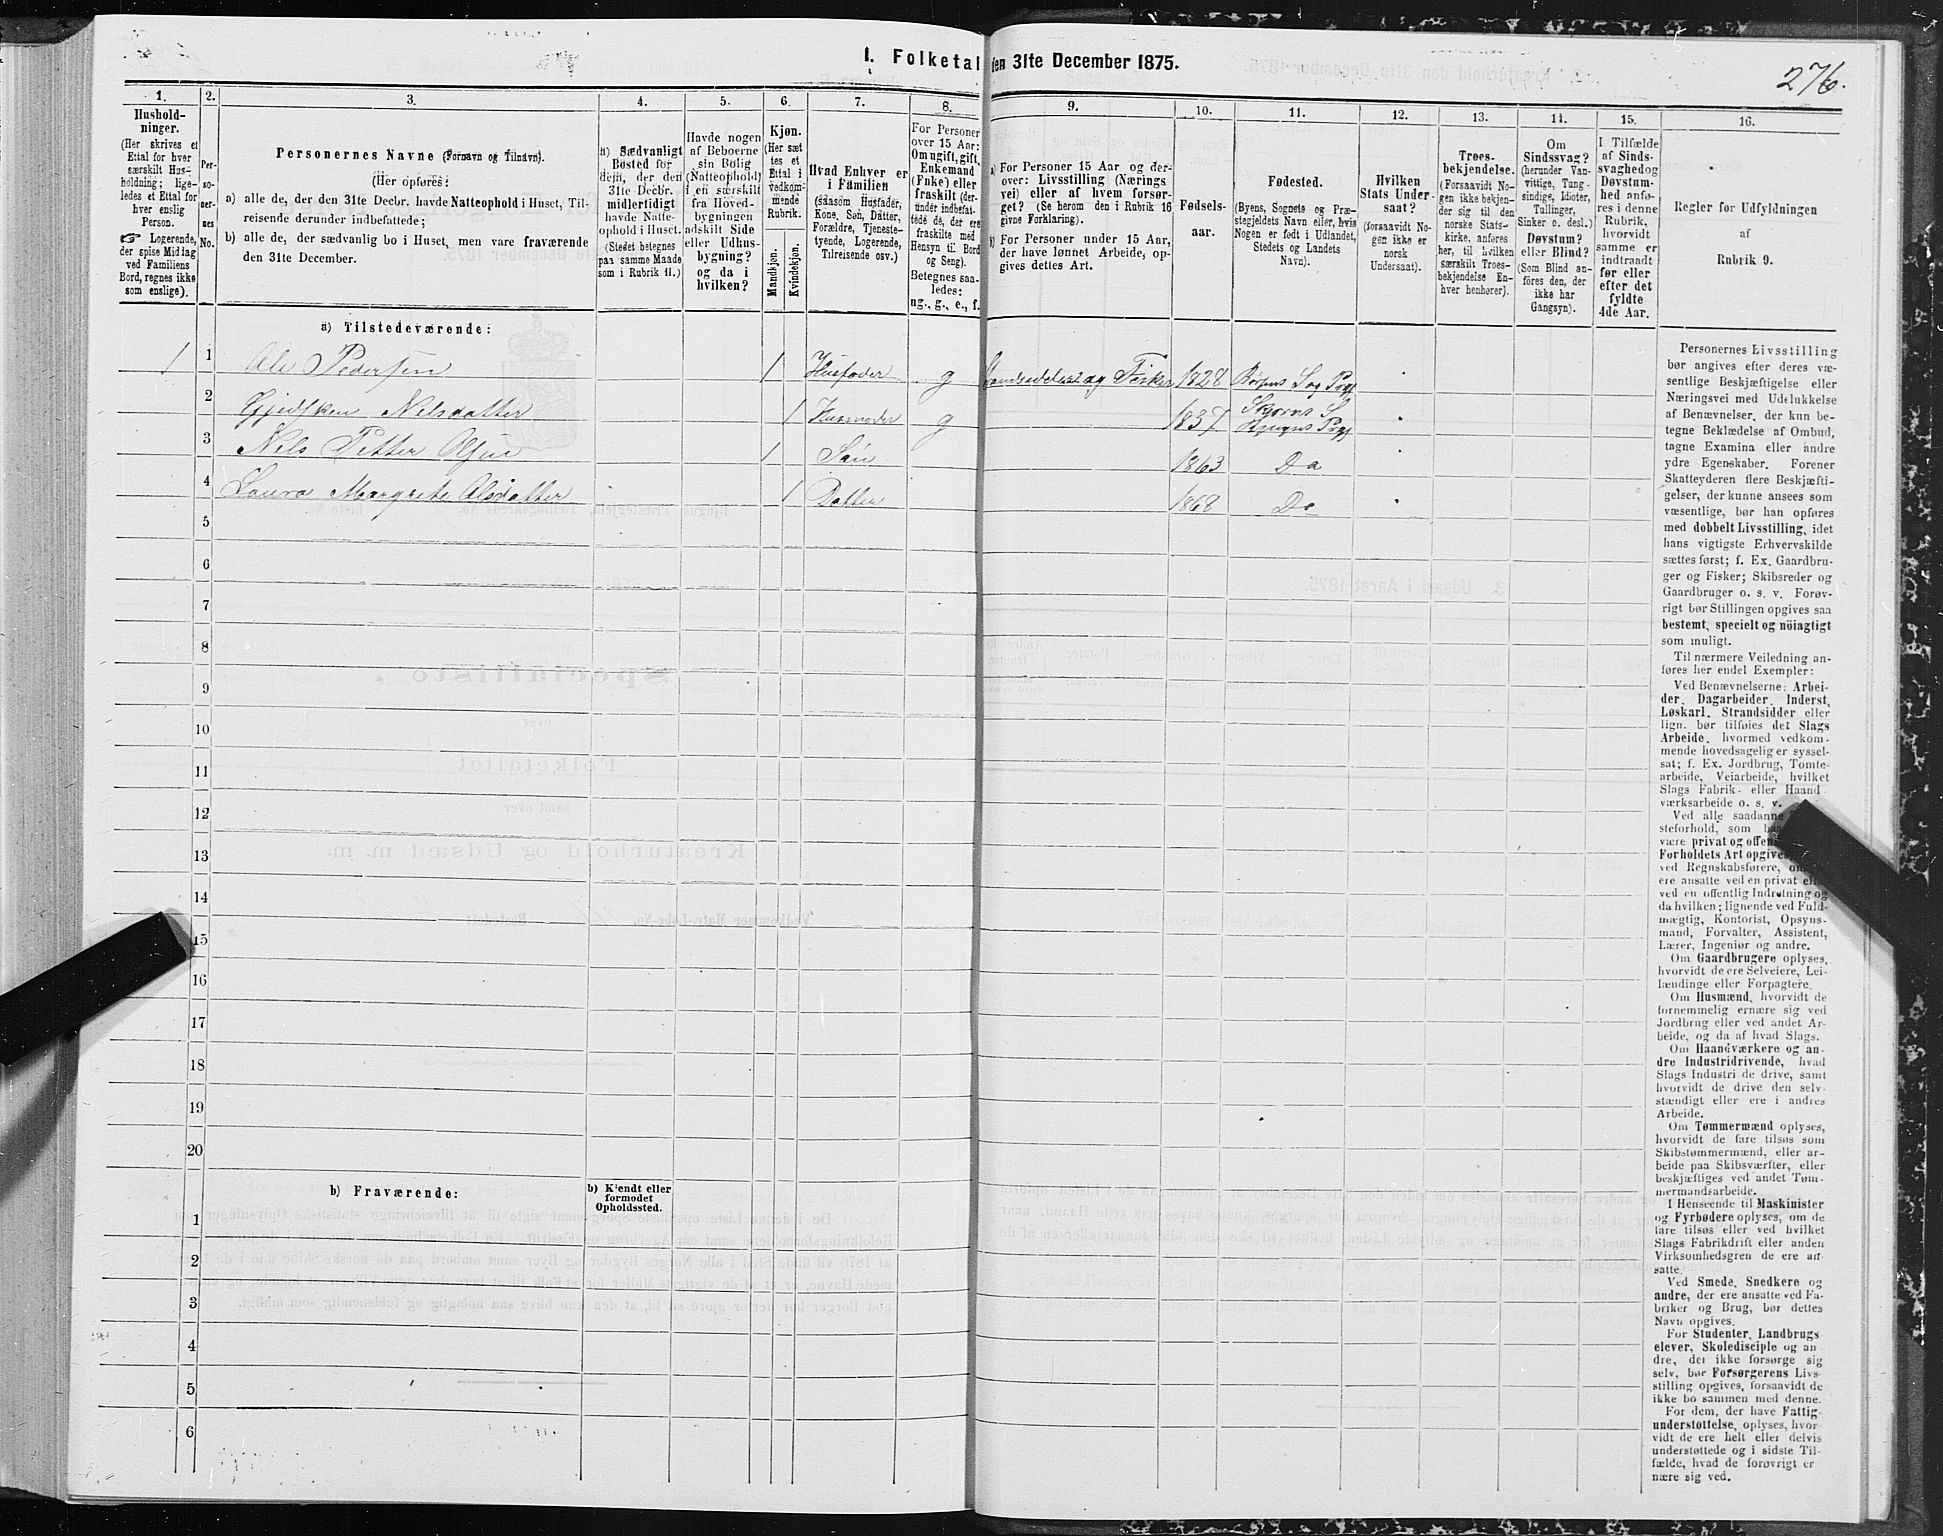 1. Folketal den 31te December 1875.
276.
1.
Hushold-
ninger.
(Her skrives et
Ettal for hver
særskilt Hus-
holdning; lige-
ledes et Ettal for
hver enslig
Person.
☞ Logerende,
der spise Middag
ved Familiens
Bord, regnes ikke
som enslige).
2.
Per-
so-
ner-
nes
No.
3.
Personernes Navne (Fornavn og Tilnavn).
(Her opføres:
a) alle de, der den 31te Decbr. havde Natteophold i Huset, Til-
reisende derunder indbefattede;
b) alle de, der sædvanlig bo i Huset, men vare fraværende
den 31te December.
4.
a) Sædvanligt
Bosted for
dem, der den
31te Decbr.
midlertidigt
havde Natte-
ophold i Huset.
(Stedet betegnes
paa samme Maade
som i Rubrik 11.)
5.
Havde nogen
af Beboerne
sin Bolig
(Natteophold)
i en særskilt
fra Hoved-
bygningen
adskilt Side
eller Udhus-
bygning?
og da i
hvilken?
6.
Kjøn.
(Her sæt
tes et
Ettal i
vedkom-
mende
Rubrik.
Mandkjøn.
Kvindekjøn.
7.
Hvad Enhver er
i Familien
(saasom Husfader,
Kone, Søn, Datter,
Forældre, Tjeneste-
tyende, Logerende,
Tilreisende osv.)
8.
For Personer
over 15 Aar:
Om ugift, gift,
Enkemand
(Enke) eller
fraskilt (der-
under indbefat-
tede de, der ere
fraskilte med
Hensyn til Bord
og Seng).
Betegnes saa-
ledes:
ug., g., e., f.
9.
a) For Personer 15 Aar og der-
over: Livsstilling (Nærings
vei) eller af hvem forsør-
get? (Se herom den i Rubrik 16
givne Forklaring).
b) For Personer under 15 Aar,
der have lønnet Arbeide, op-
gives dettes Art.
10.
Fødsels-
aar.
11.
Fødested.
(Byens, Sognets og Præ-
stegjeldets Navn eller, hvis
Nogen er født i Udlandet,
Stedets og Landets
Navn).
12.
Hvilken
Stats Under-
saat?
(forsaavidt No-
gen ikke er
norsk
Undersaat).
13.
Troes-
bekjendelse.
(Forsaavidt No-
gen ikke bekjen-
der sig til den
norske Stats-
kirke, anføres
her, til hvilken
særskilt Troes-
bekjendelse En-
hver henhører).
14.
Om
Sindssvag?
(herunder Van-
vittige, Tung-
sindige, Idioter,
Tullinger,
Sinker o. desl.)
Døvstum?
eller Blind?
(Som Blind an-
føres den, der
ikke har
Gangsyn).
15.
I Tilfælde
af Sinds-
svaghed og
Døvstum-
hed anfø-
res i denne
Rubrik,
hvorvidt
samme er
indtraadt
før eller
efter det
fyldte
4de Aar.
16.
Regler for Udfyldningen
af
Rubrik 9.
a) Tilstedeværende:
1 1 Ole Pedersen 1 Husfader g Fisker 1828
2 Nilsdatter 1 Husmoder g 1837 Skjerns S
3 Nils Petter Olsen 1 Søn 1863 Do
4 Laura Margrete Olsdatter 1 Datter 1868 Do
5
6
7
8
9
10
11
12
13
14
15
16
17
18
19
20
b) Fraværende:
b) Kjendt eller
formodet
Opholdssted.
1
2
3
4
5
6
Personernes Livsstilling
bør angives efter deres væ-
sentlige Beskjæftigelse eller
Næringsvei med Udelukkelse
af Benævnelser, der kun be-
tegne Beklædelse af Ombud,
tagne Examina eller andre
ydre Egenskaber. Forener
Skatteyderen flere Beskjæfti-
gelser, der kunne ansees som
væsentlige, bør han opføres
med dobbelt Livsstilling, idet
hans vigtigste Erhvervskilde
sættes først; f. Ex. Gaardbru-
ger og Fisker; Skibsreder og
Gaardbruger o. s. v. Forøv-
rigt bør Stillingen opgives saa
bestemt, specielt og nöiagtigt
som muligt.
Til nærmere Veiledning an-
føres her endel Exempler:
Ved Benævnelserne: Arbei-
der, Dagarbeider, Inderst,
Løskarl, Strandsidder eller
lign. bør tilføies det Slags
Arbeide, hvormed vedkom-
mende hovedsagelig er syssel-
sat; f. Ex. Jordbrug, Tomte-
arbeide, Veiarbeide, hvilket
Slags Fabrik- eller Haand
værksarbeide o. s. v.
Ved alle saadanne
steforhold, som
være privat og
Forholdets Art opgives,
ved Regnskabsførere,
ere ansatte ved en privat
ved en offentlig Indretning og
da hvilken; lignende ved Fuld-
mægtig, Kontorist, Opsyns-
mand, Forvalter, Assistent,
Lærer, Ingeniør og andre.
Om Gaardbrugere oplyses,
hvorvidt de ere Selveiere, Lei-
lændinge eller Forpagtere.
Om Husmænd, hvorvidt de
fornemmelig ernære sig ved
Jordbrug eller ved andet Ar-
beide, og da af hvad Slags.
Om Haandværkere og an-
dre Industridrivende, hvad
Slags Industri de drive, samt
hvorvidt de drive den selv-
stændigt eller ere i andres
Arbeide.
Om Tømmermænd oplyses,
hvorvidt de fare tilsøs som
Skibstømmermænd, eller ar-
beide paa Skibsværfter, eller
beskjæftiges ved andet Tøm-
mermandsarbeide.
I Henseende til Maskinister
og Fyrbødere oplyses, om de
fare tilsøs eller ved hvilket
Slags Fabrikdrift eller anden
Virksomhedsgren de ere an-
satte.
Ved Smede, Snedkere og
andre, der ere ansatte ved Fa-
briker og Brug, bør dettes
Navn opgives.
For Studenter, Landbrugs
elever, Skoledisciple og an
dre, der ikke forsørge sig
selv, bør Forsørgerens Livs-
stilling opgives, forsaavidt de
ikke bo sammen med denne.
For dem, der have Fattig-
understøttelse, oplyses, hvor-
vidt de ere helt eller delvis
understøttede og i sidste Til-
fælde, hvad de forøvrigt er
nære sig ved.